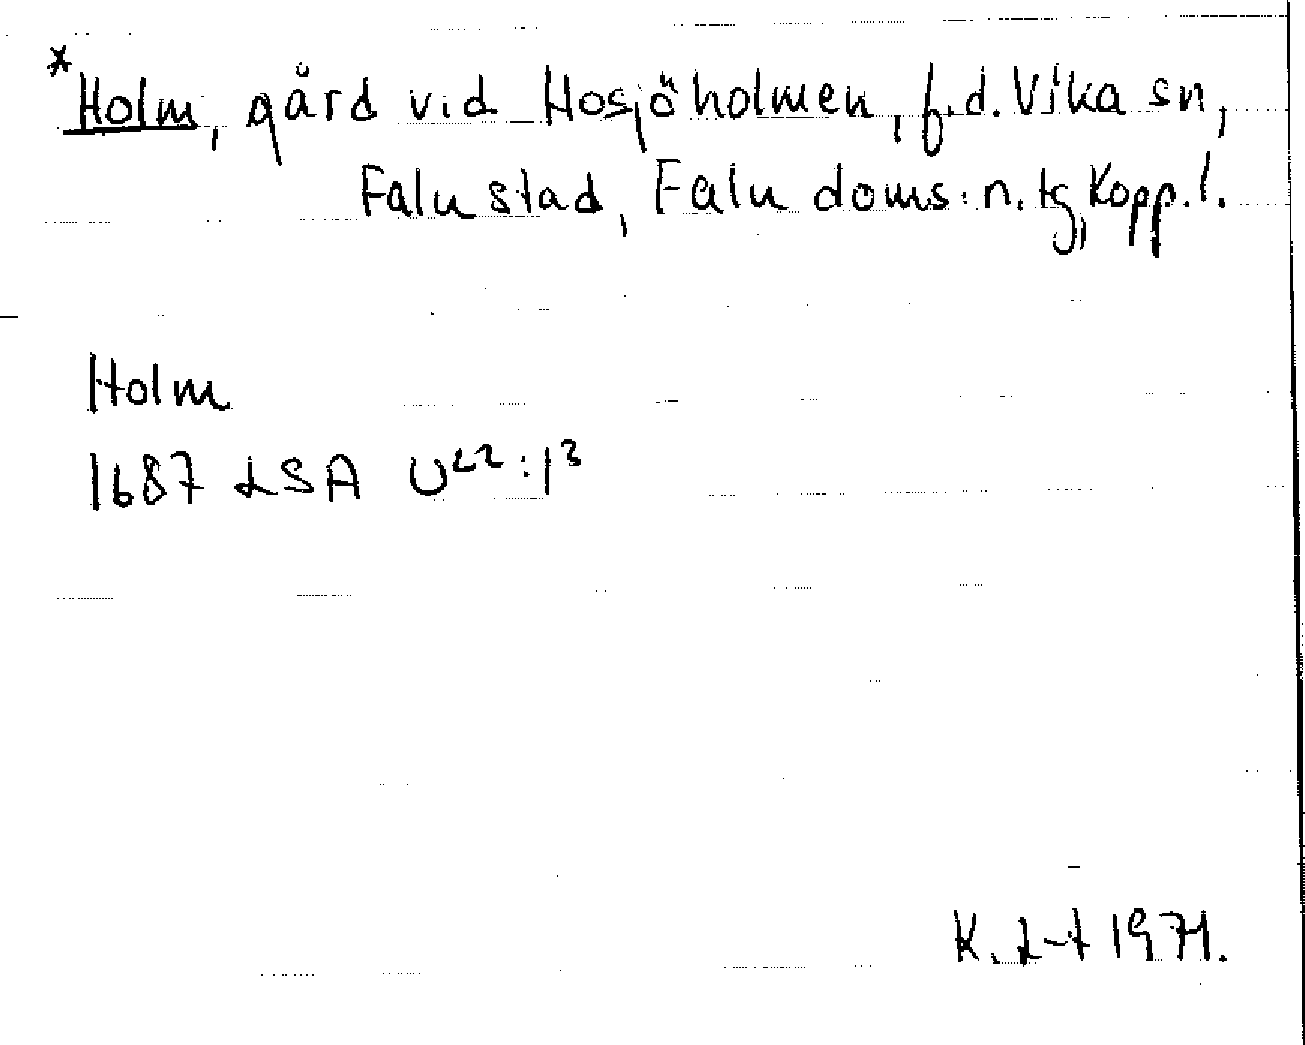 *Holm, gård vid Hosjöholmen, f.d. Vika sn,
Falu stad, Falu doms:n.tg, Kopp.l.
Holm
1687 LSA U22:1³
K. L-t 1971.